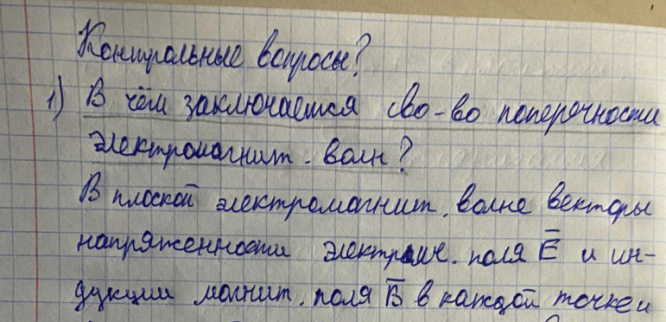 Контрольные вопросы?
1) В чём заключается сво-во поперечности
электромагнит. волн?
В плоской электромагнит. волне векторы
напряженности электрич. поля E̅ и ин-
дукции магнит. поля B̅ в каждой точке и